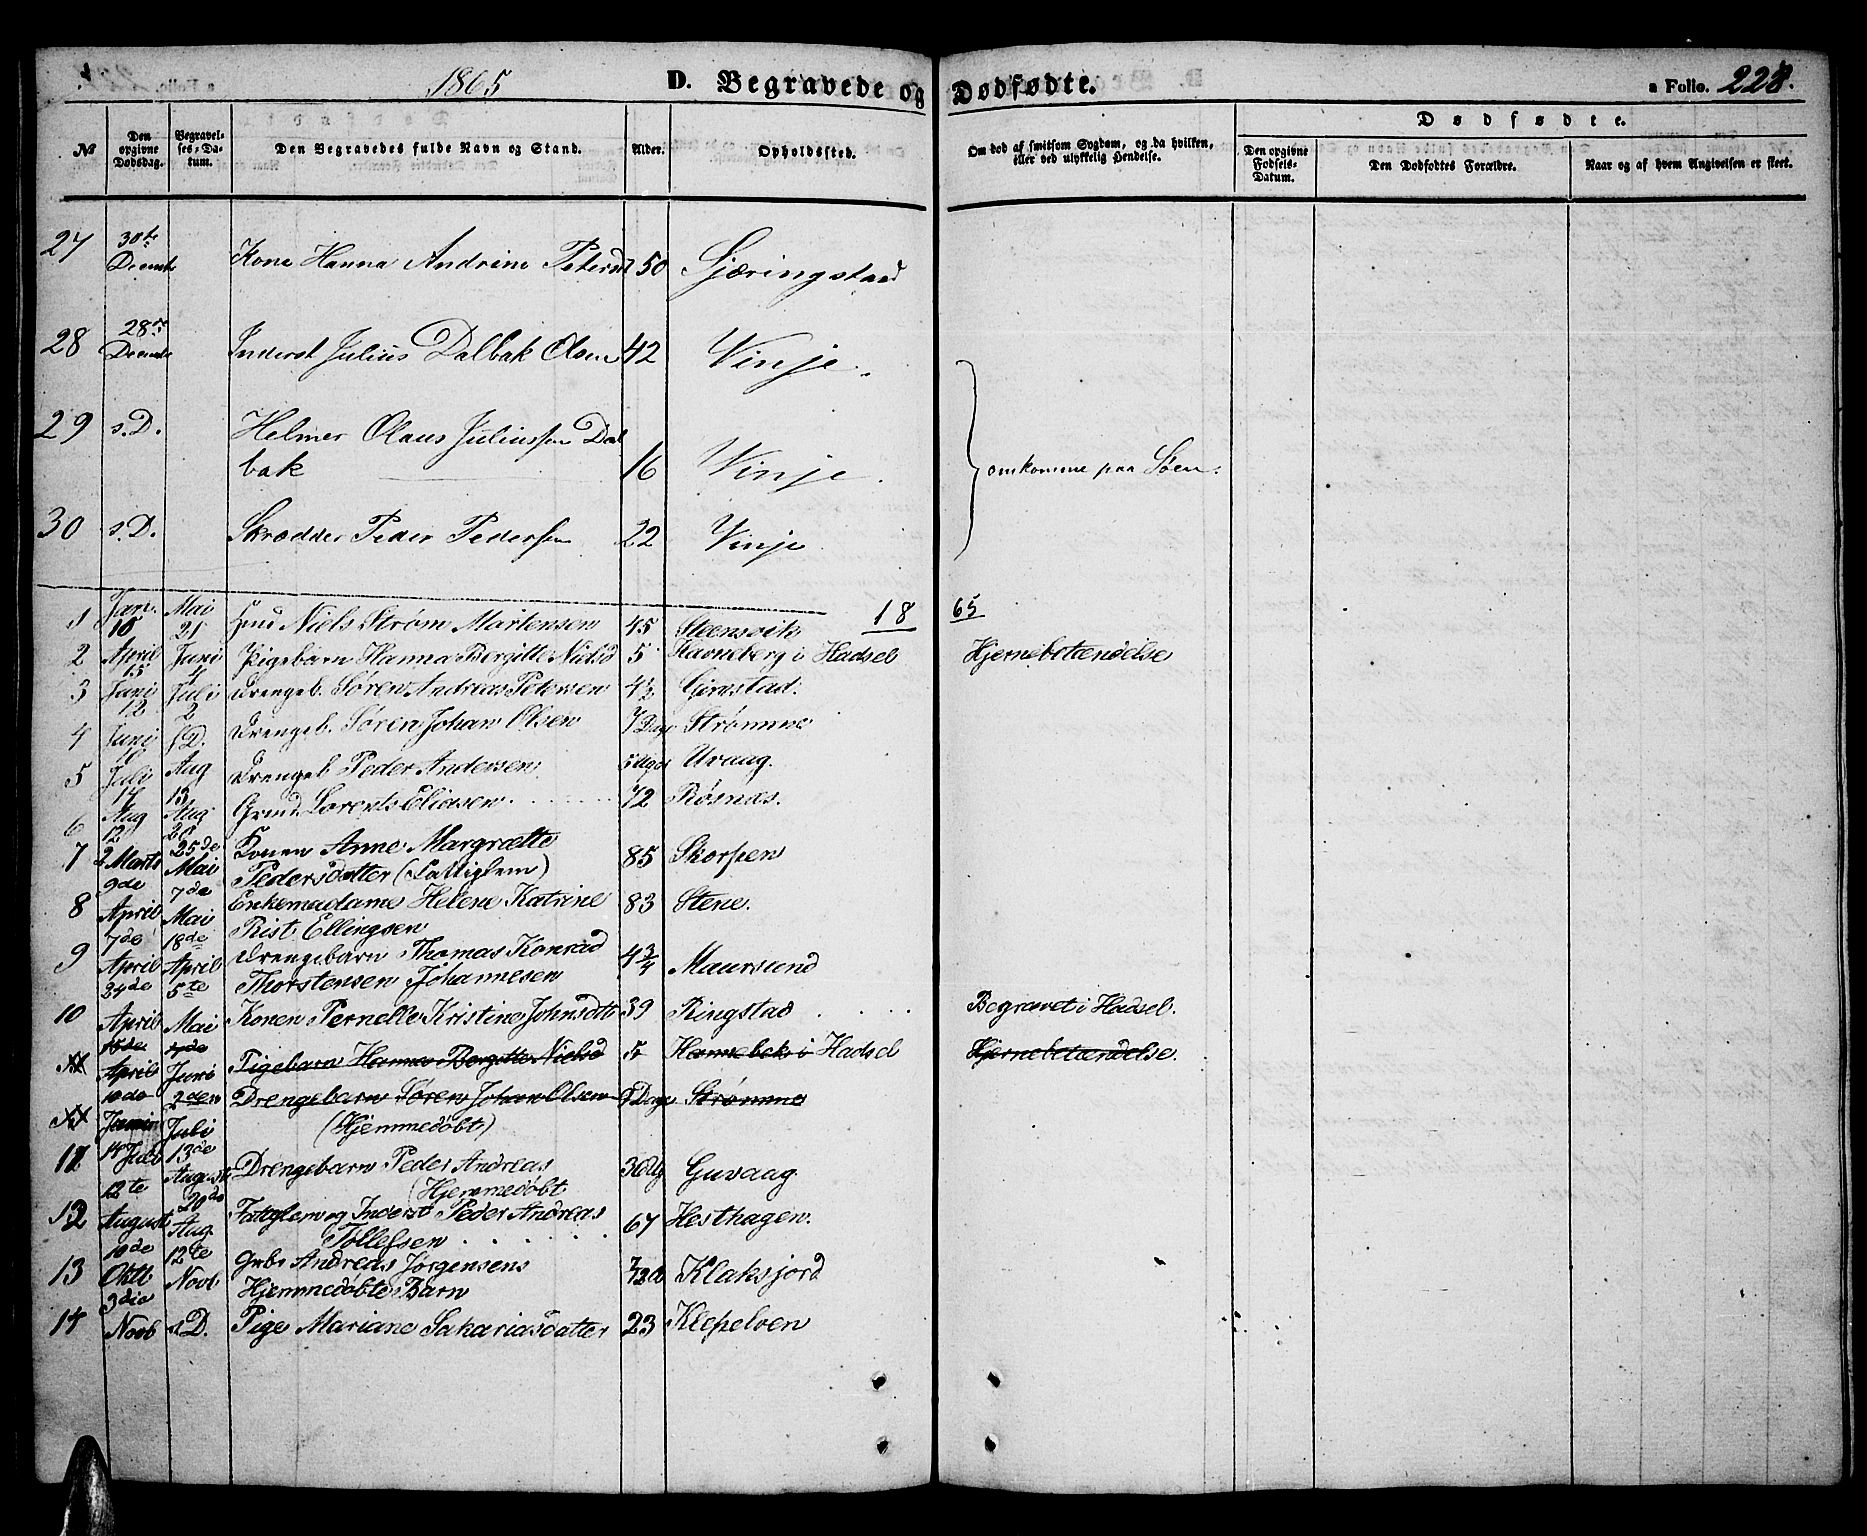 1865 D. Begravede og Dødfødte. a Folio. 228.
Dødfødte.
№ Den opgivne Dødsdag. Begravelses-Datum. Den Begravedes fulde Navn og Stand. Alder. Opholdssted. Om død af smitsom Sygdom, og da hvilken, eller ved ulykkelig Hendelse. Den opgivne Fødsels-Datum. Den Dødfødtes Forældre. Naar og af hvem Angivelsen er skeet.
27 30te Decemb Kone Hanna Andrine Petersd 50 Sjæringstad
28 28de Decemb Inderst Julius Dalbak Olsen 42 Vinje.
29 s.D. Helmer Olaus Juliussen Dal
bak 16 Vinje. omkomne paa Søen.
30 s.D. Skrædder Peder Pedersen 22 Vinje
1865
1 Jan. 10 Mai 21 Niels Strøm Martensen 45 Steensvik
2 April 15 Juni 4 Pigebarn Hanna Bergitte Nielsd 5 i Hadsel Hjernebetændelse
3 Juni 12 Juli 2 Drengeb. Søren Andreas Petersen 4½ Gimstad.
4 Juni 10 s.D. Drengeb. Søren Johan Olsen 7 Dage Strømme
5 Juli 14 Aug 13 Drengeb Peder Andersen
6 Aug 12 Aug 20 Lorents Eliasen 72 Røsnæs.
7 2 Marts 25de Mai Konen Anne Margrætte
Pedersdatter (Fattiglem) 85 Skorpen
8 9de April 7de Mai Enkemadame Helene Katrine 83 Stene.
Rist Ellingsen
9 7de April 18de April Drengebarn Thomas Konrad
Thorstensen Johannesen 4¾ Maursund
10 24de April 5te Mai Konen Pernelle Kristine Johnsdtt 39 Ringstad Begravet i Hadsel.
15de April 4de Juni Pigebarn Hanna Bergitte Nielsd 5 i Hadsel Hjernebetændelse.
10de Junii 2den Juli Drengebarn Søren Johan Olsen Dage Strømme
(Hjemmedøbt)
11 14 Juli 13de August Drengebarn Peder Andreas
(Hjemmedøbt Guvaag
12 12te August 20de Aug. Inderst Peder Andreas
Tollefsen 67 Hesthagen.
13 10de Oktb 12te Novb Gbr Andreas Jørgensens
Hjemmedøbte Barn Klaksjord
14 3die Novb s.D. Pige Mariane Sakariasdatter 23 Klepelven